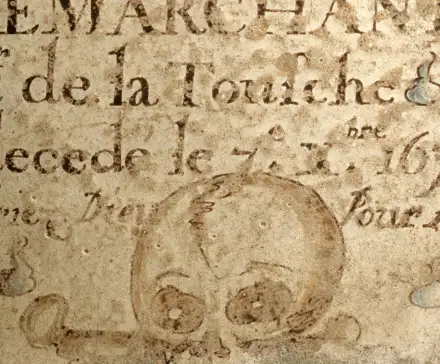 EMARCHAN
de la Touſche
decedé le 7.e X.bre 167
Priez Dieu Pour